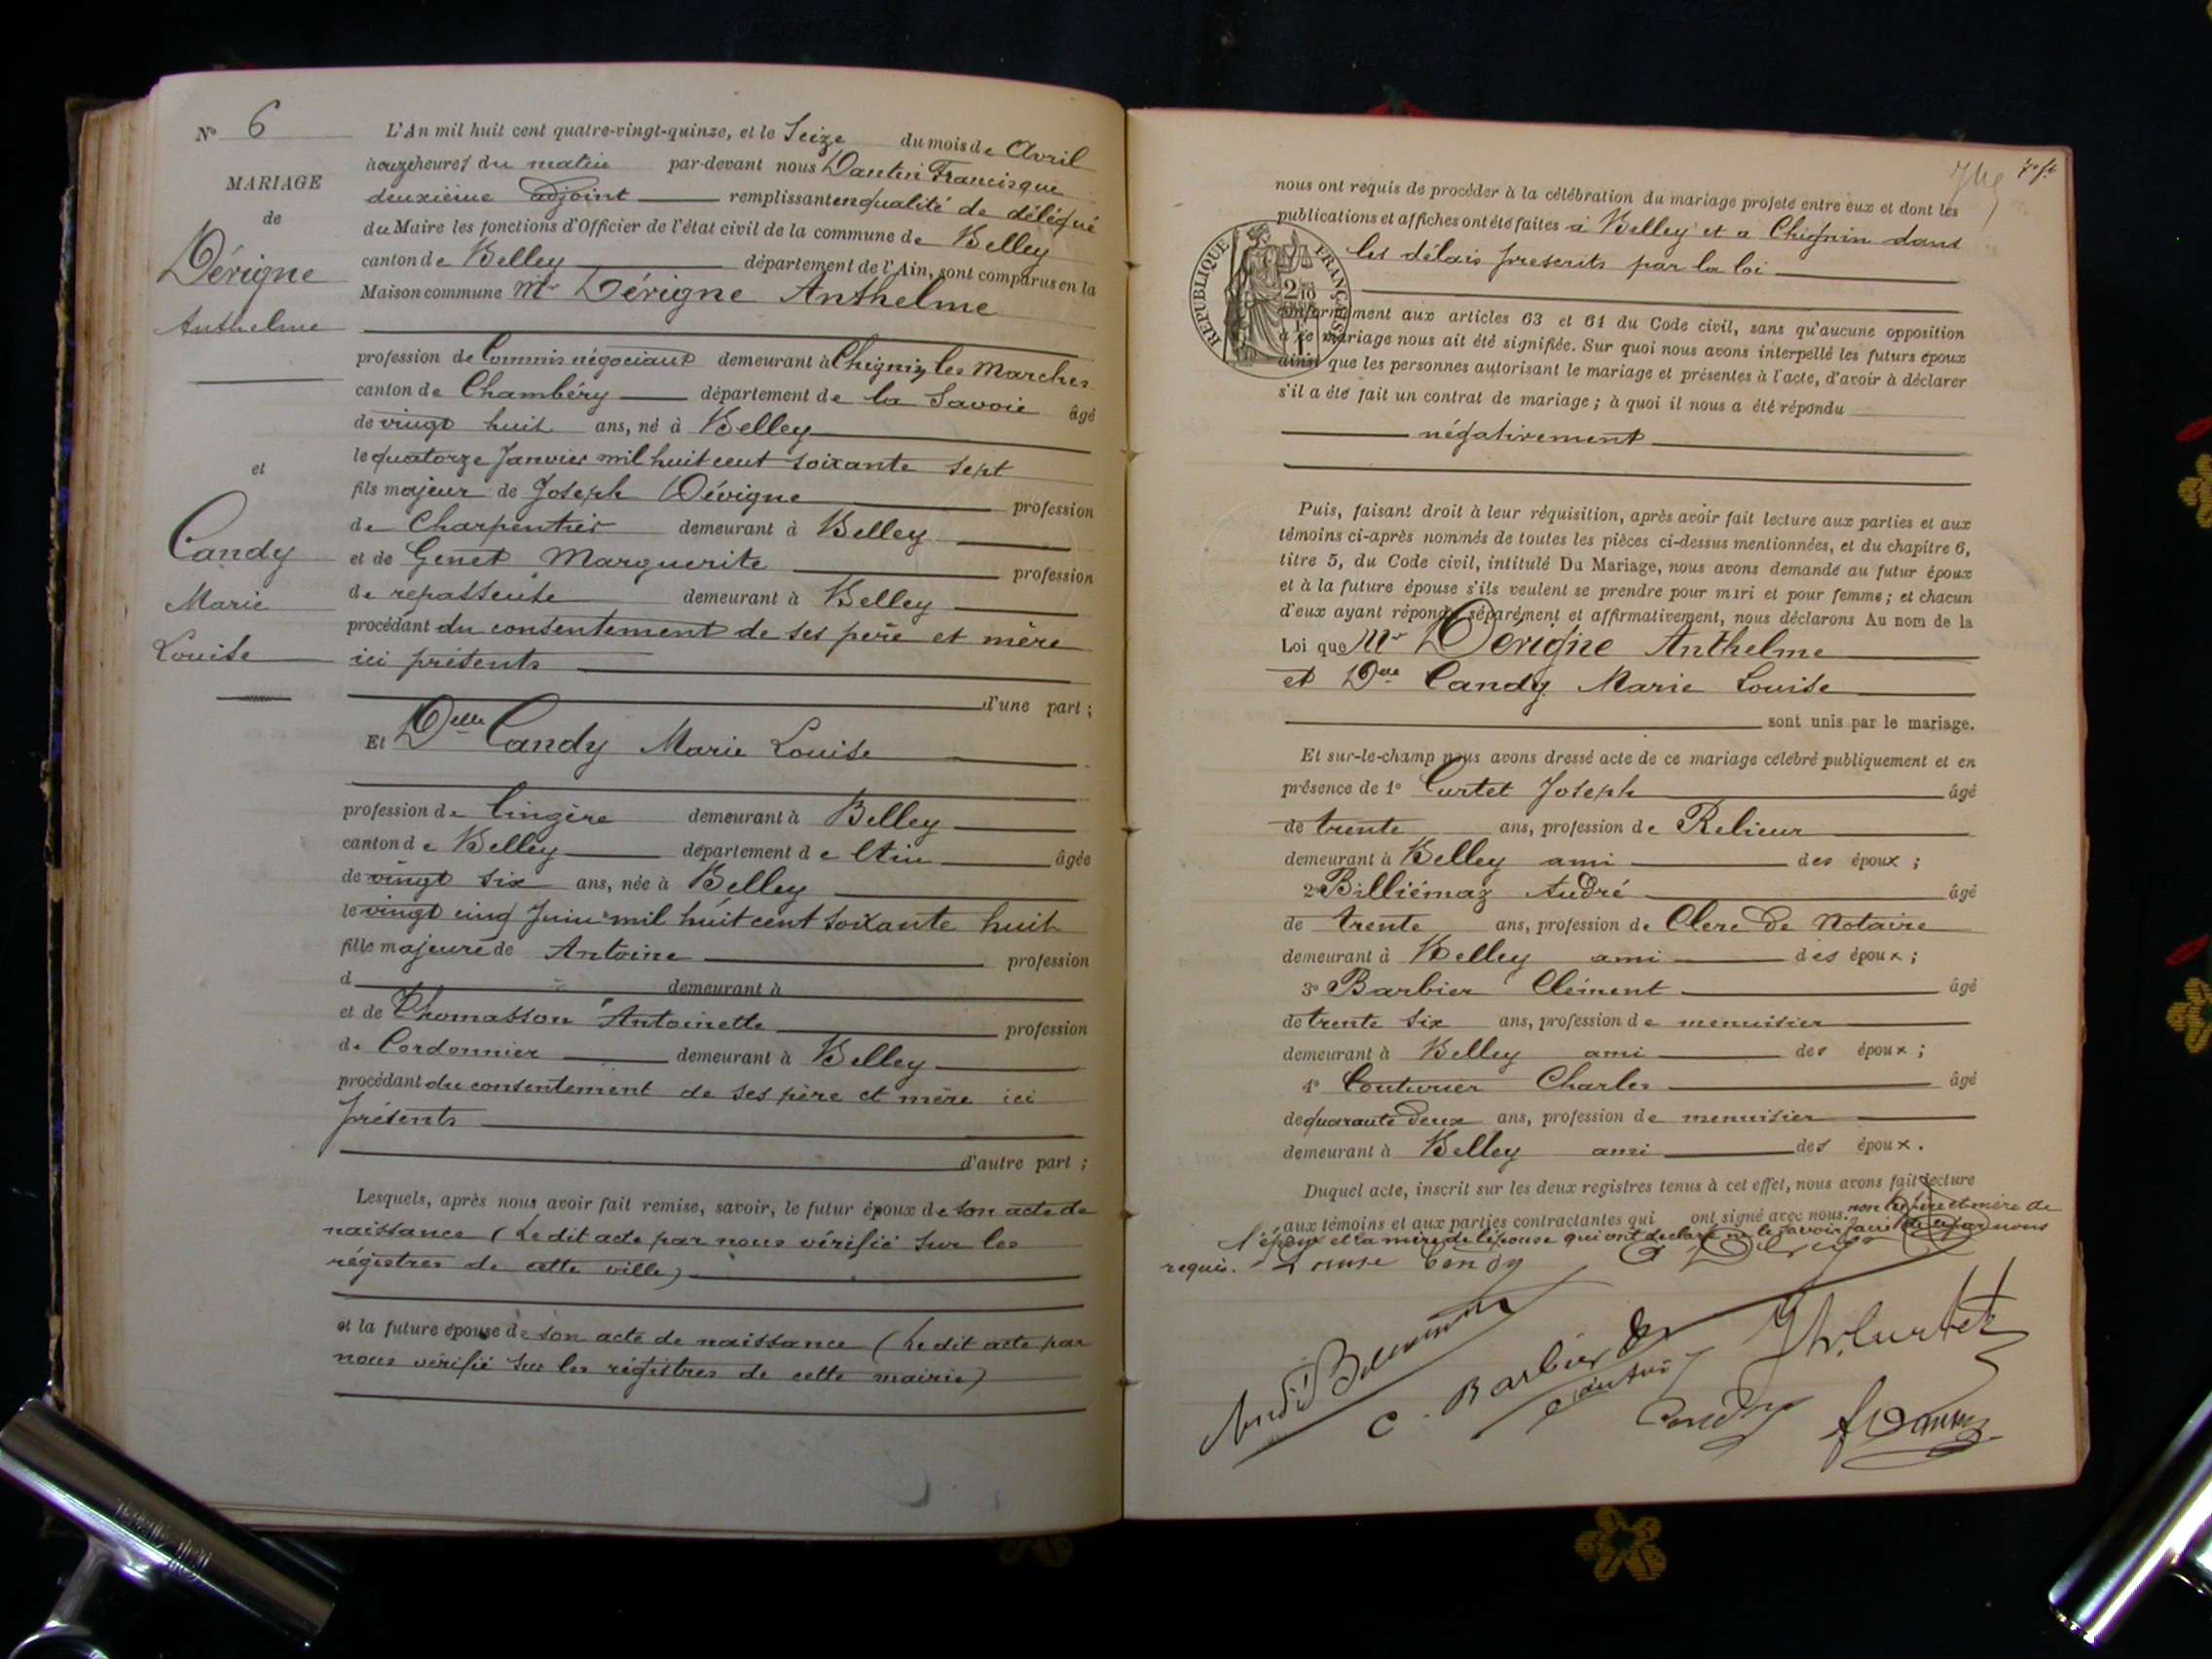 N° 6
MARIAGE
de
Dérigne
Anthelme
et
Candy
Marie
Louise
L'An mil huit cent quatre-vingt-quinze, et le Seize du mois de Avril
à onze heures du matin par-devant nous Dantin Francisque
deuxième adjoint remplissant en qualité de délégué
du Maire les fonctions d'Officier de l'état civil de la commune de Belley
canton de Belley département de l'Ain, sont comparus en la
Maison commune Mr Dérigne Anthelme
profession de Commis négociant demeurant à Chignin, les Marches
canton de Chambéry département de la Savoie âgé
de vingt huit ans, né à Belley
le quatorze Janvier mil huit cent soixante sept
fils majeur de Joseph Dérigne profession
de Charpentier demeurant à Belley
et de Genet Marguerite profession
de repasseuse demeurant à Belley
procédant du consentement de ses père et mère
ici présents
d'une part ;
Et Delle Candy Marie Louise
profession de lingère demeurant à Belley
canton de Belley département de l'Ain âgée
de vingt six ans, née à Belley
le vingt cinq Juin mil huit cent soixante huit
fille majeure de Antoine profession
d demeurant à
et de Thomasson Antoinette profession
de Cordonnier demeurant à Belley
procédant du consentement de ses père et mère ici
présents
d'autre part ;
Lesquels, après nous avoir fait remise, savoir, le futur époux de son acte de
naissance (Ledit acte par nous vérifié sur les
régistres de cette ville)
et la future épouse de son acte de naissance (Ledit acte par
nous vérifié sur les régistres de cette mairie)
nous ont requis de procéder à la célébration du mariage projeté entre eux et dont les
publications et affiches ont été faites à Belley et a Chignin dans
les délais prescrits par la loi
RÉPUBLIQUE FRANÇAISE
conformément aux articles 63 et 64 du Code civil, sans qu'aucune opposition
à ce mariage nous ait été signifiée. Sur quoi nous avons interpellé les futurs époux
ainsi que les personnes autorisant le mariage et présentes à l'acte, d'avoir à déclarer
s'il a été fait un contrat de mariage ; à quoi il nous a été répondu
négativement
Puis, faisant droit à leur réquisition, après avoir fait lecture aux parties et aux
témoins ci-après nommés de toutes les pièces ci-dessus mentionnées, et du chapitre 6,
titre 5, du Code civil, intitulé Du Mariage, nous avons demandé au futur époux
et à la future épouse s'ils veulent se prendre pour mari et pour femme ; et chacun
d'eux ayant répondu séparément et affirmativement, nous déclarons Au nom de la
Loi que Mr Dérigne Anthelme
et Dlle Candy Marie Louise
sont unis par le mariage.
Et sur-le-champ nous avons dressé acte de ce mariage célébré publiquement et en
présence de 1° Curtet Joseph âgé
de trente ans, profession de Relieur
demeurant à Belley ami des époux ;
2° Billiémaz André âgé
de trente ans, profession de Clerc de Notaire
demeurant à Belley ami des époux ;
3° Barbier Clément âgé
de trente six ans, profession de menuisier
demeurant à Belley ami des époux ;
4° Couturier Charles âgé
de quarante deux ans, profession de menuisier
demeurant à Belley ami des époux.
Duquel acte, inscrit sur les deux registres tenus à cet effet, nous avons fait lecture
aux témoins et aux parties contractantes qui ont signé avec nous. non les père et mère de
l'époux et la mère de l'épouse qui ont déclaré ne le savoir faire de ce par nous
requis. Louise Candy
C. Barbier
Jh. Curtet
Candy